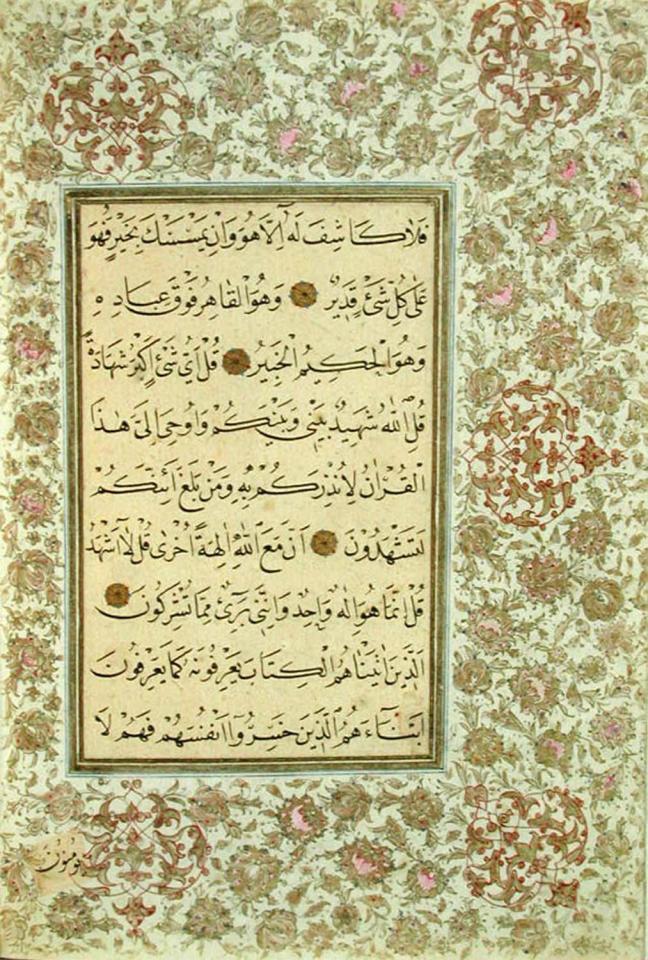 فَلَا كَاشِفَ لَهُ اِلَّا هُوَ وَاِنْ يَمْسَسْكَ بِخَيْرٍ فَهُوَ
عَلٰى كُلِّ شَىْءٍ قَدِيرٌ وَهُوَ الْقَاهِرُ فَوْقَ عِبَادِهِ
وَهُوَ الْحَكِيمُ الْخَبِيرُ قُلْ اَىُّ شَىْءٍ اَكْبَرُ شَهَادَةً
قُلِ اللّٰهُ شَهِيدٌ بَيْنِى وَبَيْنَكُمْ وَاُوحِىَ اِلَىَّ هٰذَا
الْقُرْاٰنُ لِاُنْذِرَكُمْ بِهِ وَمَنْ بَلَغَ اَئِنَّكُمْ
لَتَشْهَدُونَ اَنَّ مَعَ اللّٰهِ اٰلِهَةً اُخْرٰى قُلْ لَا اَشْهَدُ
قُلْ اِنَّمَا هُوَ اِلٰهٌ وَاحِدٌ وَاِنَّنِى بَرِىءٌ مِمَّا تُشْرِكُونَ
اَلَّذِينَ اٰتَيْنَاهُمُ الْكِتَابَ يَعْرِفُونَهُ كَمَا يَعْرِفُونَ
اَبْنَاءَهُمْ اَلَّذِينَ خَسِرُوا اَنْفُسَهُمْ فَهُمْ لَا
يُؤْمِنُونَ